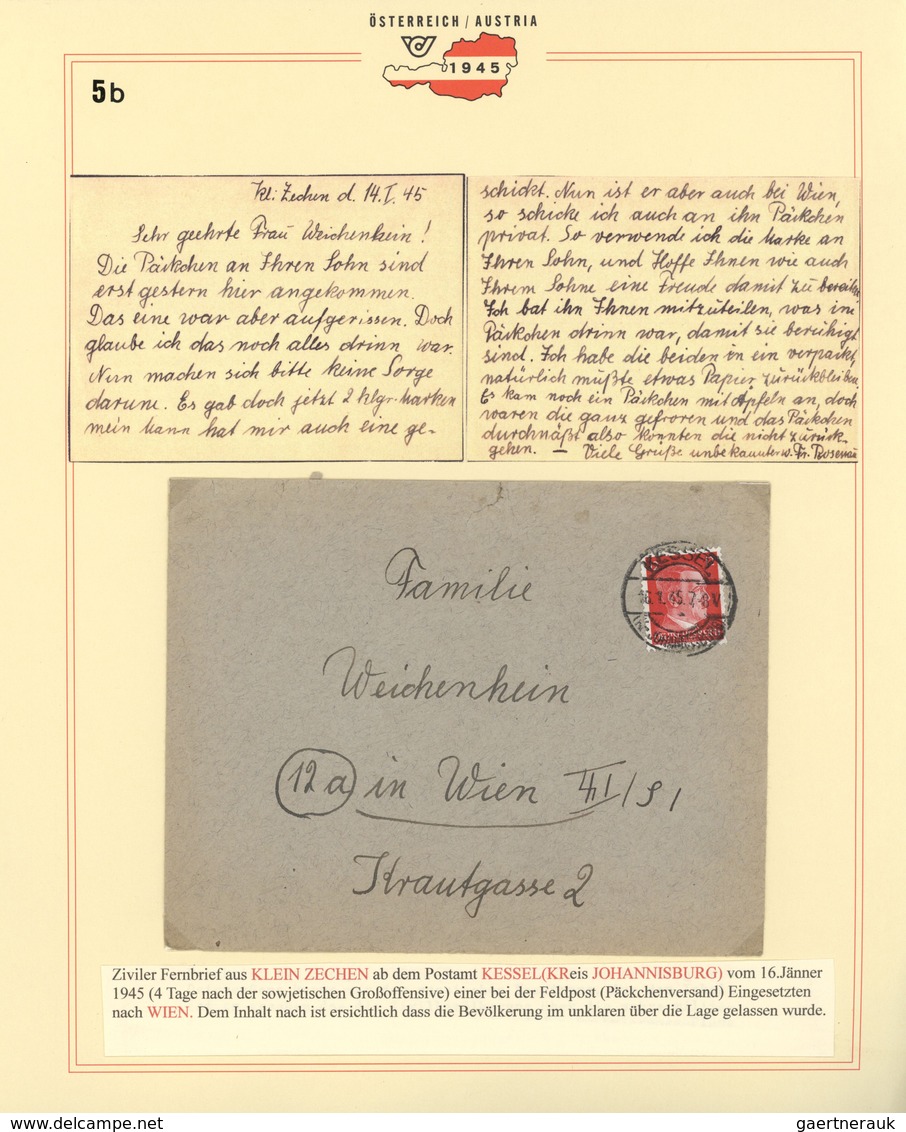 ÖSTERREICH / AUSTRIA
1945
5b
Kl: Zechen d. 14.I.45
Sehr geehrte Frau Weichenhein!
Die Päckchen an Ihren Sohn sind
erst gestern hier angekommen.
Das eine war aber aufgerissen. Doch
glaube ich das noch alles drinn war.
Nun machen sich bitte keine Sorge
darum. Es gab doch jetzt 2 klgr-Marken
mein Mann hat mir auch eine ge-
schickt. Nun ist er aber auch bei Wien,
so schicke ich auch an ihn Päckchen
privat. So verwende ich die Marke an
Ihren Sohn, und Hoffe Ihnen wie auch
Ihrem Sohne eine Freude damit zu bereiten
Ich bat ihn Ihnen mitzuteilen, was im
Päckchen drinn war, damit sie beruhigt
sind. Ich habe die beiden in ein verpackt
natürlich mußte etwas Papier zurückbleiben.
Es kam noch ein Päckchen mit Äpfeln an, doch
waren die ganz gefroren und das Päckchen
durchnäßt also konnten die nicht zurück-
gehen. — Viele Grüße unbekannterw. Fr. Rosenau
KESSEL
16.1.45.7-8V
Familie
Weichenhein
12a in Wien III/51
Krautgasse 2
Ziviler Fernbrief aus KLEIN ZECHEN ab dem Postamt KESSEL(KReis JOHANNISBURG) vom 16.Jänner
1945 (4 Tage nach der sowjetischen Großoffensive) einer bei der Feldpost (Päckchenversand) Eingesetzten
nach WIEN. Dem Inhalt nach ist ersichtlich dass die Bevölkerung im unklaren über die Lage gelassen wurde.
delcampe.net
gaertnerauk